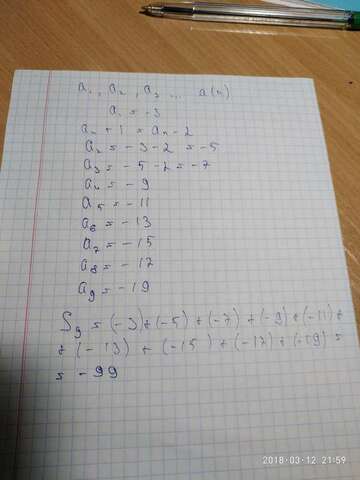 a₁, a₂, a₃ ... a(n)
a₁ = -3
aₙ + 1 = aₙ - 2
a₂ = - 3 - 2 = -5
a₃ = - 5 - 2 = -7
a₄ = - 9
a₅ = - 11
a₆ = - 13
a₇ = - 15
a₈ = - 17
a₉ = - 19
S₉ = (-3)+(-5) + (-7) + (-9) + (-11) +
+ (-13) + (-15) + (-17) + (-19) =
= - 99
2018-03-12 21:59